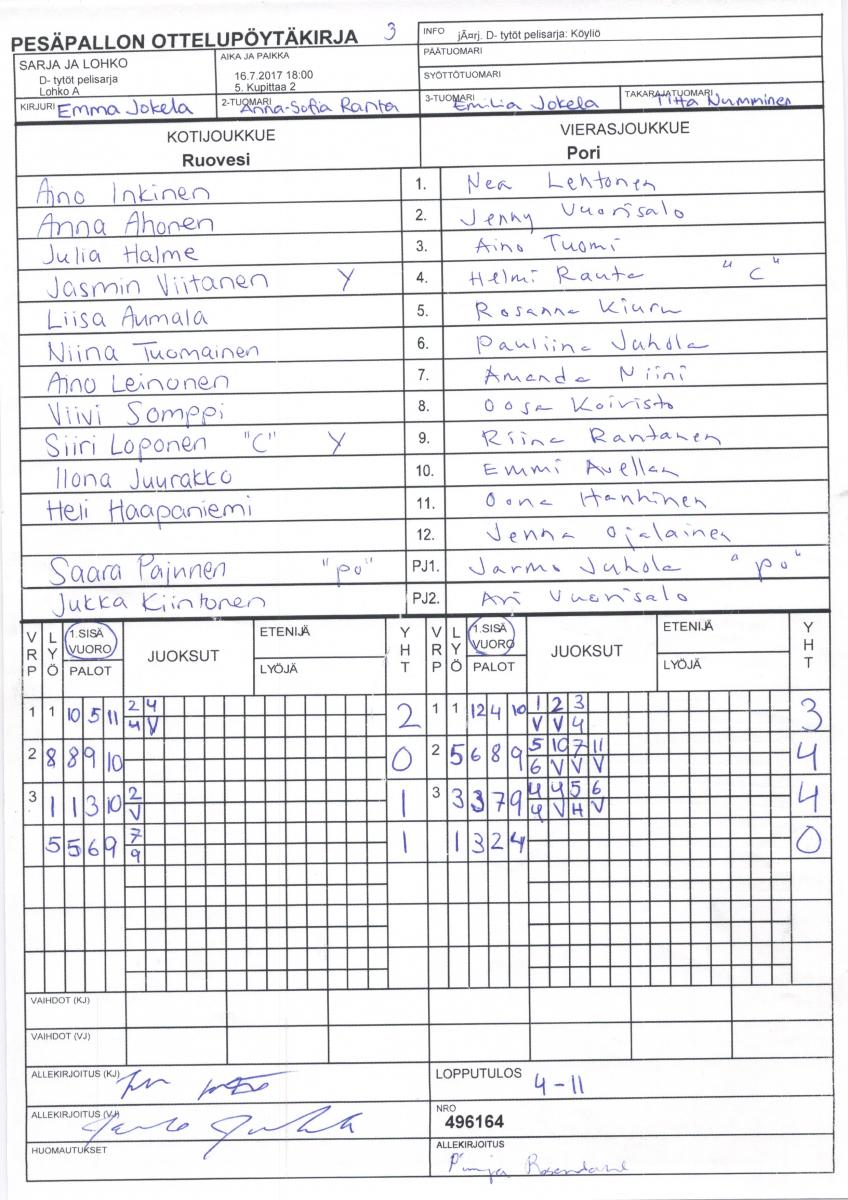 PESÄPALLON OTTELUPÖYTÄKIRJA 3
INFO jÃ¤rj. D- tytöt pelisarja: Köyliö
SARJA JA LOHKO
D- tytöt pelisarja
Lohko A
AIKA JA PAIKKA
16.7.2017 18:00
5. Kupittaa 2
PÄÄTUOMARI
SYÖTTÖTUOMARI
KIRJURI Emma Jokela 2-TUOMARI Anna-Sofia Ranta 3-TUOMARI Emilia Jokela TAKARAJATUOMARI Titta Numminen
KOTIJOUKKUE VIERASJOUKKUE
Ruovesi Pori
Aino Inkinen 1. Nea Lehtonen
Anna Ahonen 2. Jenny Vuorisalo
Julia Halme 3. Aino Tuomi
Jasmin Viitanen Y 4. Helmi Rauta "C"
Liisa Aumala 5. Rosanna Kiuru
Niina Tuomainen 6. Pauliina Juhola
Aino Leinonen 7. Amanda Niini
Viivi Somppi 8. Oosa Koivisto
Siiri Loponen "C" Y 9. Riina Rantanen
Ilona Juurakko 10. Emmi Avellan
Heli Haapaniemi 11. Oona Hanhinen
12. Jenna Ojalainen
Saara Pajunen "po" PJ1. Jarmo Juhola "po"
Jukka Kiintonen PJ2. Ari Vuorisalo
VRP LYÖ 1.SISÄ VUORO PALOT JUOKSUT ETENIJÄ LYÖJÄ YHT VRP LYÖ 1.SISÄ VUORO PALOT JUOKSUT ETENIJÄ LYÖJÄ YHT
1 1 10 5 11 2 4 2 1 1 12 4 10 1 2 3 3
4 V V V 4
2 8 8 9 10 0 2 5 6 8 9 5 10 7 11 4
6 V V V
3 1 1 3 10 2 1 3 3 3 7 9 4 4 5 6 4
V 4 V H V
5 5 6 9 7 1 1 3 2 4 0
9
VAIHDOT (KJ)
VAIHDOT (VJ)
ALLEKIRJOITUS (KJ) LOPPUTULOS 4-11
ALLEKIRJOITUS (VJ) NRO
496164
HUOMAUTUKSET ALLEKIRJOITUS